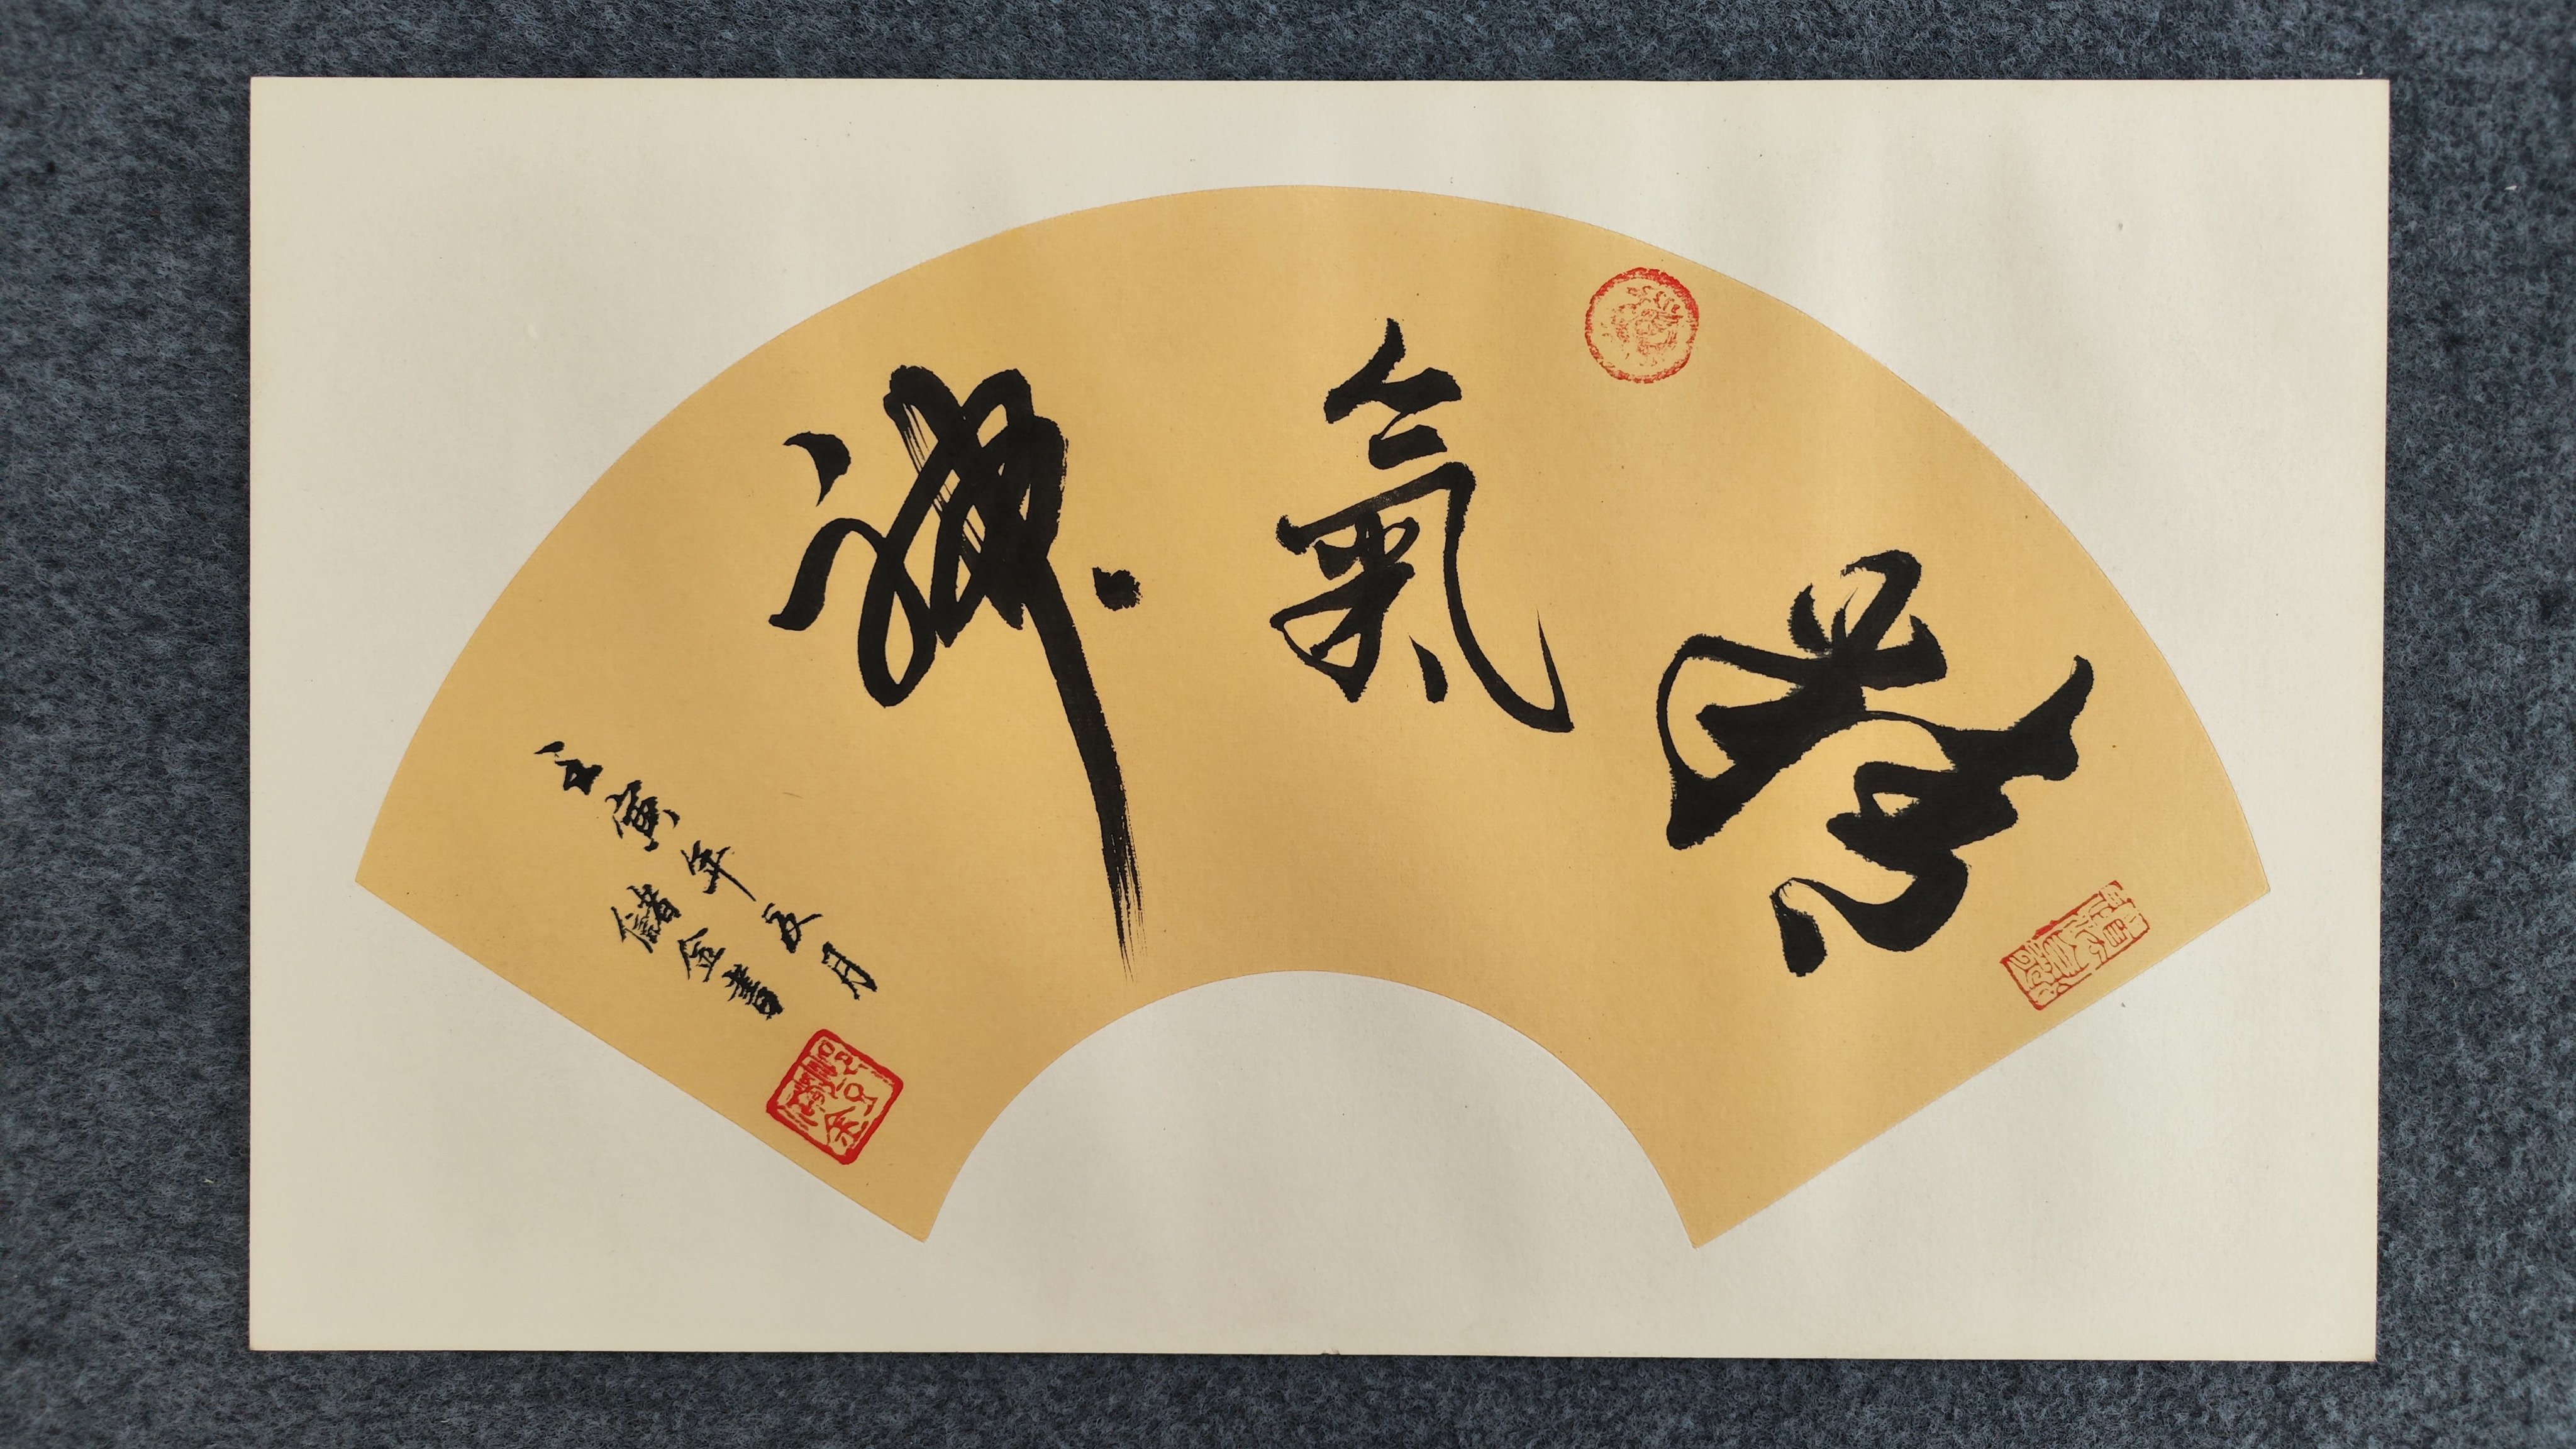 精氣神
壬寅年夏月
儲金書